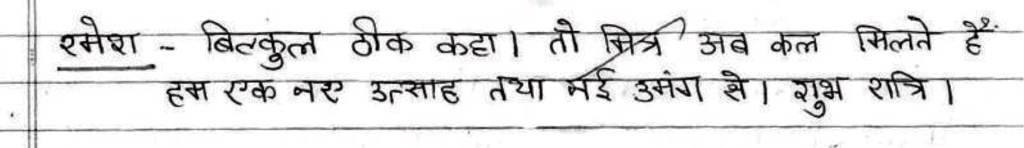 रमेश - बिल्कुल ठीक कहा। तो मित्र अब कल मिलते हैं
हम एक नए उत्साह तथा नई उमंग से। शुभ रात्रि।